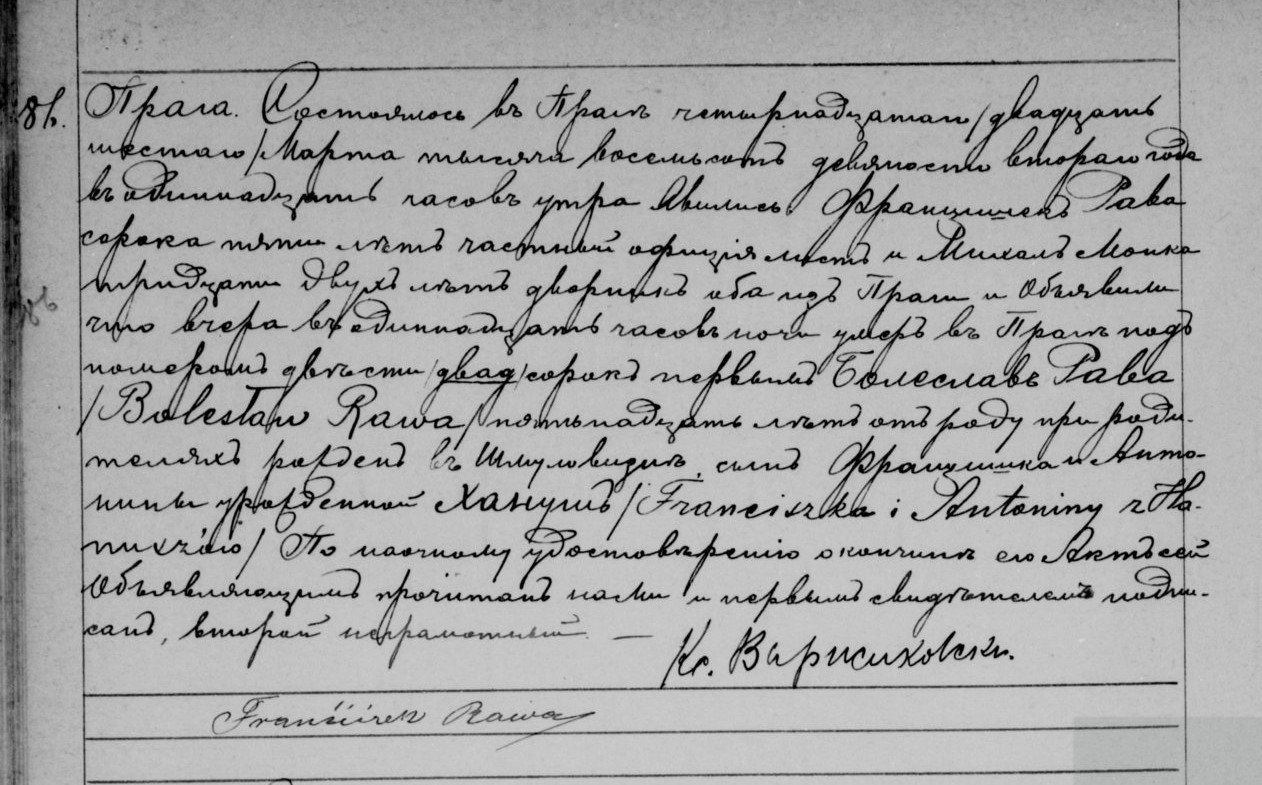 86. Прага. Состоялось въ Прагѣ четырнадцатаго /двадцать
шестаго/ Марта тысяча восемьсотъ девяносто втораго года
въ одиннадцать часовъ утра Явились Францишекъ Рава
сорока пяти лѣтъ частный оффиціялистъ и Михалъ Мońка
тридцати двухъ лѣтъ дворникъ оба изъ Праги и Объявили
что вчера въ одиннадцать часовъ ночи умеръ въ Прагѣ подъ
номеромъ двѣсти /двад/ сорокъ первымъ Болеславъ Рава
/Bolesław Rawa/ пятьнадцать лѣтъ отъ роду при роди-
теляхъ рожденъ въ Шмуловизнѣ, сынъ Францишка и Анто-
нины урожденной Ханушъ /Franciszka i Antoniny z Ha-
По наочному удостовѣренію о кончинѣ его Актъ сей
Объявляющимъ прочитанъ нами и первымъ свидѣтелемъ подпи-
санъ, второй неграмотный. —
Кс.
Franciszek Rawa
86